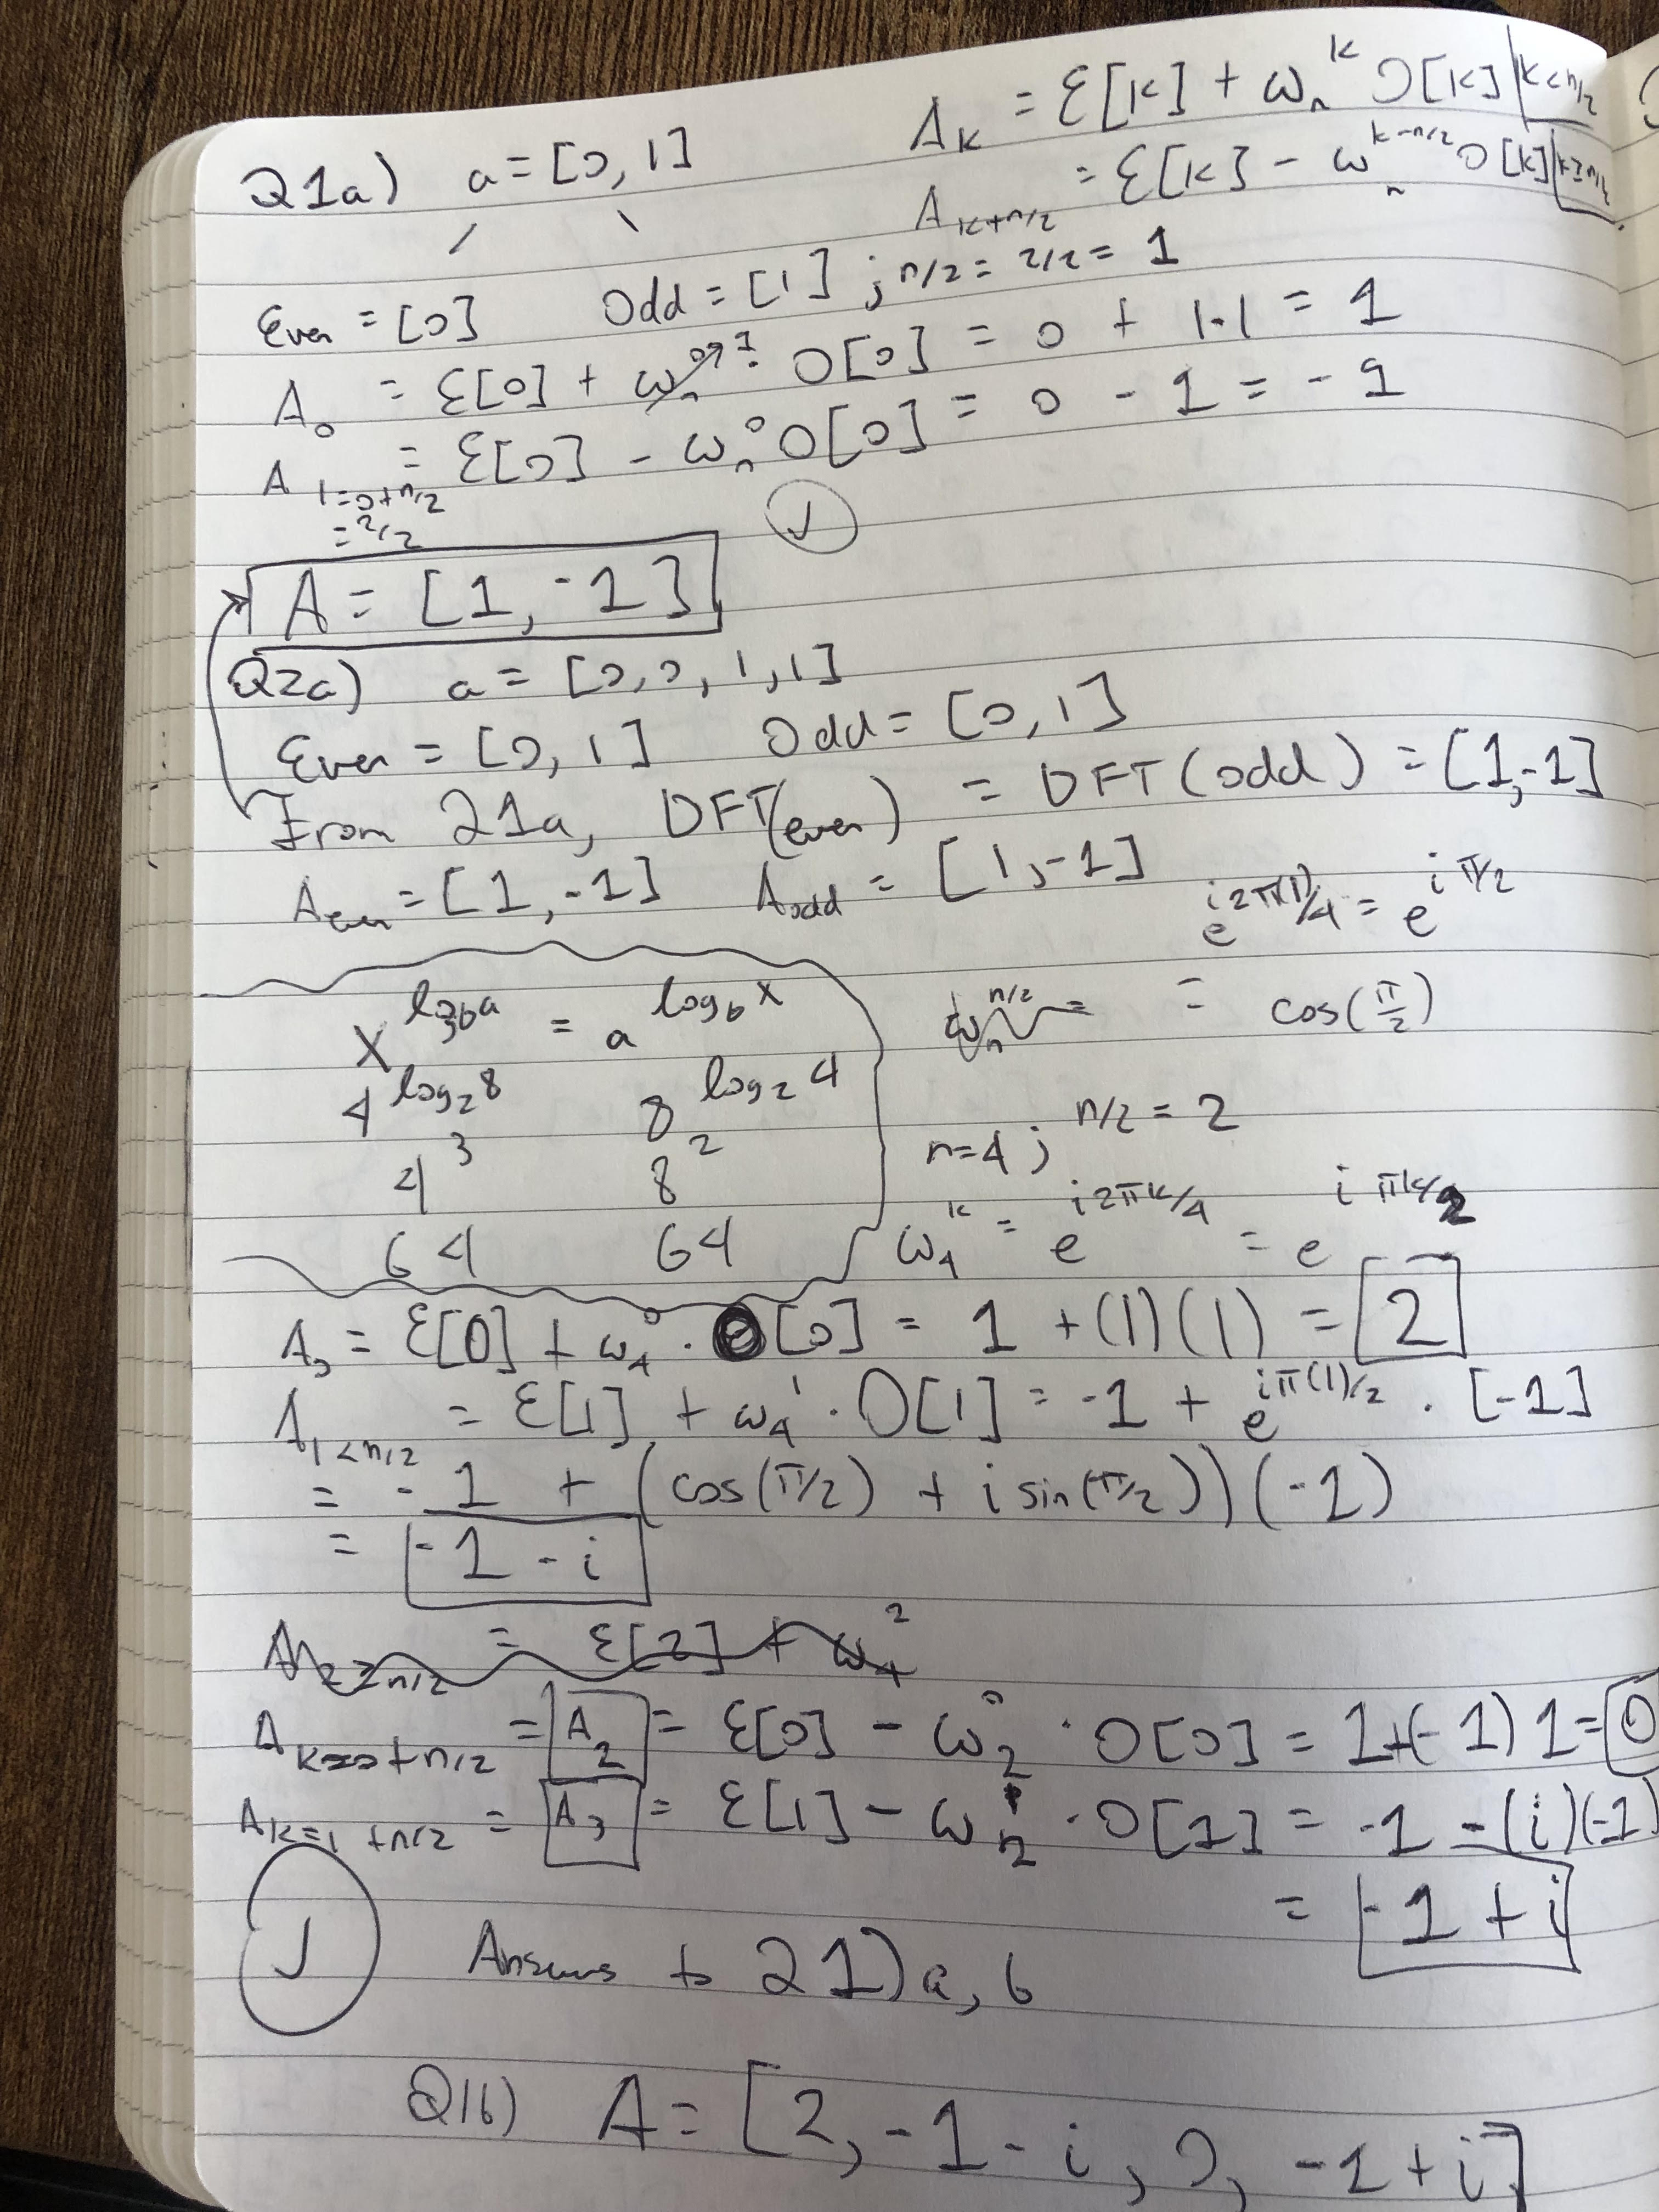 Q1a) a = [0, 1]
A_k = E[k] + ω_n^k O[k] | k < n/2
A_{k+n/2} = E[k] - ω_n^{k-n/2} O[k] | k ≥ n/2
Even = [0] Odd = [1] ; n/2 = 2/2 = 1
A_0 = E[0] + ω_n^0 → 1 · O[0] = 0 + 1·1 = 1
A_{1=0+n/2 =2/2} = E[0] - ω_n^0 O[0] = 0 - 1 = -1
✓
A = [1, -1]
Q2a) a = [0, 0, 1, 1]
Even = [0, 1] Odd = [0, 1]
From Q1a, DFT(even) = DFT(odd) = [1, -1]
A_even = [1, -1] A_odd = [1, -1]
e^{i2π(1)/4} = e^{iπ/2}
= cos(π/2)
ω_n^{n/2} =
x^{log_b a} = a^{log_b x}
4^{log_2 8} 8^{log_2 4}
4^3 8^2
64 64
n=4 ; n/2 = 2
ω_4^k = e^{i2πk/4} = e^{iπk/2}
A_0 = E[0] + ω_4^0 · O[0] = 1 + (1)(1) = 2
A_{1<n/2} = E[1] + ω_4^1 · O[1] = -1 + e^{iπ(1)/2} · [-1]
= -1 + (cos(π/2) + i sin(π/2))(-1)
= -1 - i
A_{2≥n/2} = E[2] + ω_4^2
A_{k=0+n/2} = A_2 = E[0] - ω_2^0 · O[0] = 1+(-1)1 = 0
A_{k=1+n/2} = A_3 = E[1] - ω_2^1 · O[1] = -1 - (i)(-1)
= -1 + i
✓ Answers to Q1) a, b
Q1b) A = [2, -1 - i, 0, -1 + i]